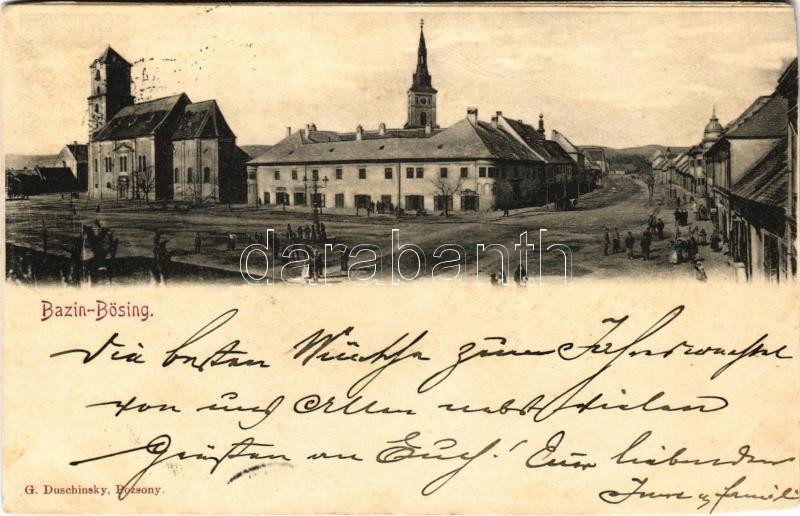 darabanth
Bazin-Bösing.
Die besten Wünsche zum Jahreswechsel
von uns Allen nebst vielen
Grüßen an Euch! Eure liebenden
u. famili
G. Duschinsky, Pozsony.